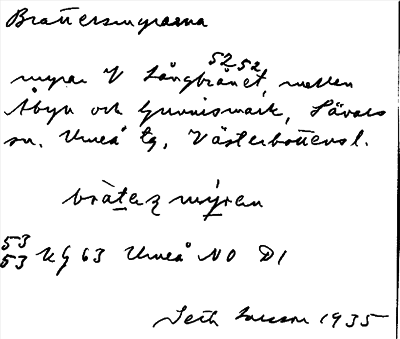 Brattersmyrarna
52 52
myrar V Långbrånet, mellan
Åbyn och Gunnismark, Sävars
sn. Umeå tg, Västerbottens l.
bràtaz mýran
53
53 KG 63 Umeå NO D1
Seth Larsson 1935